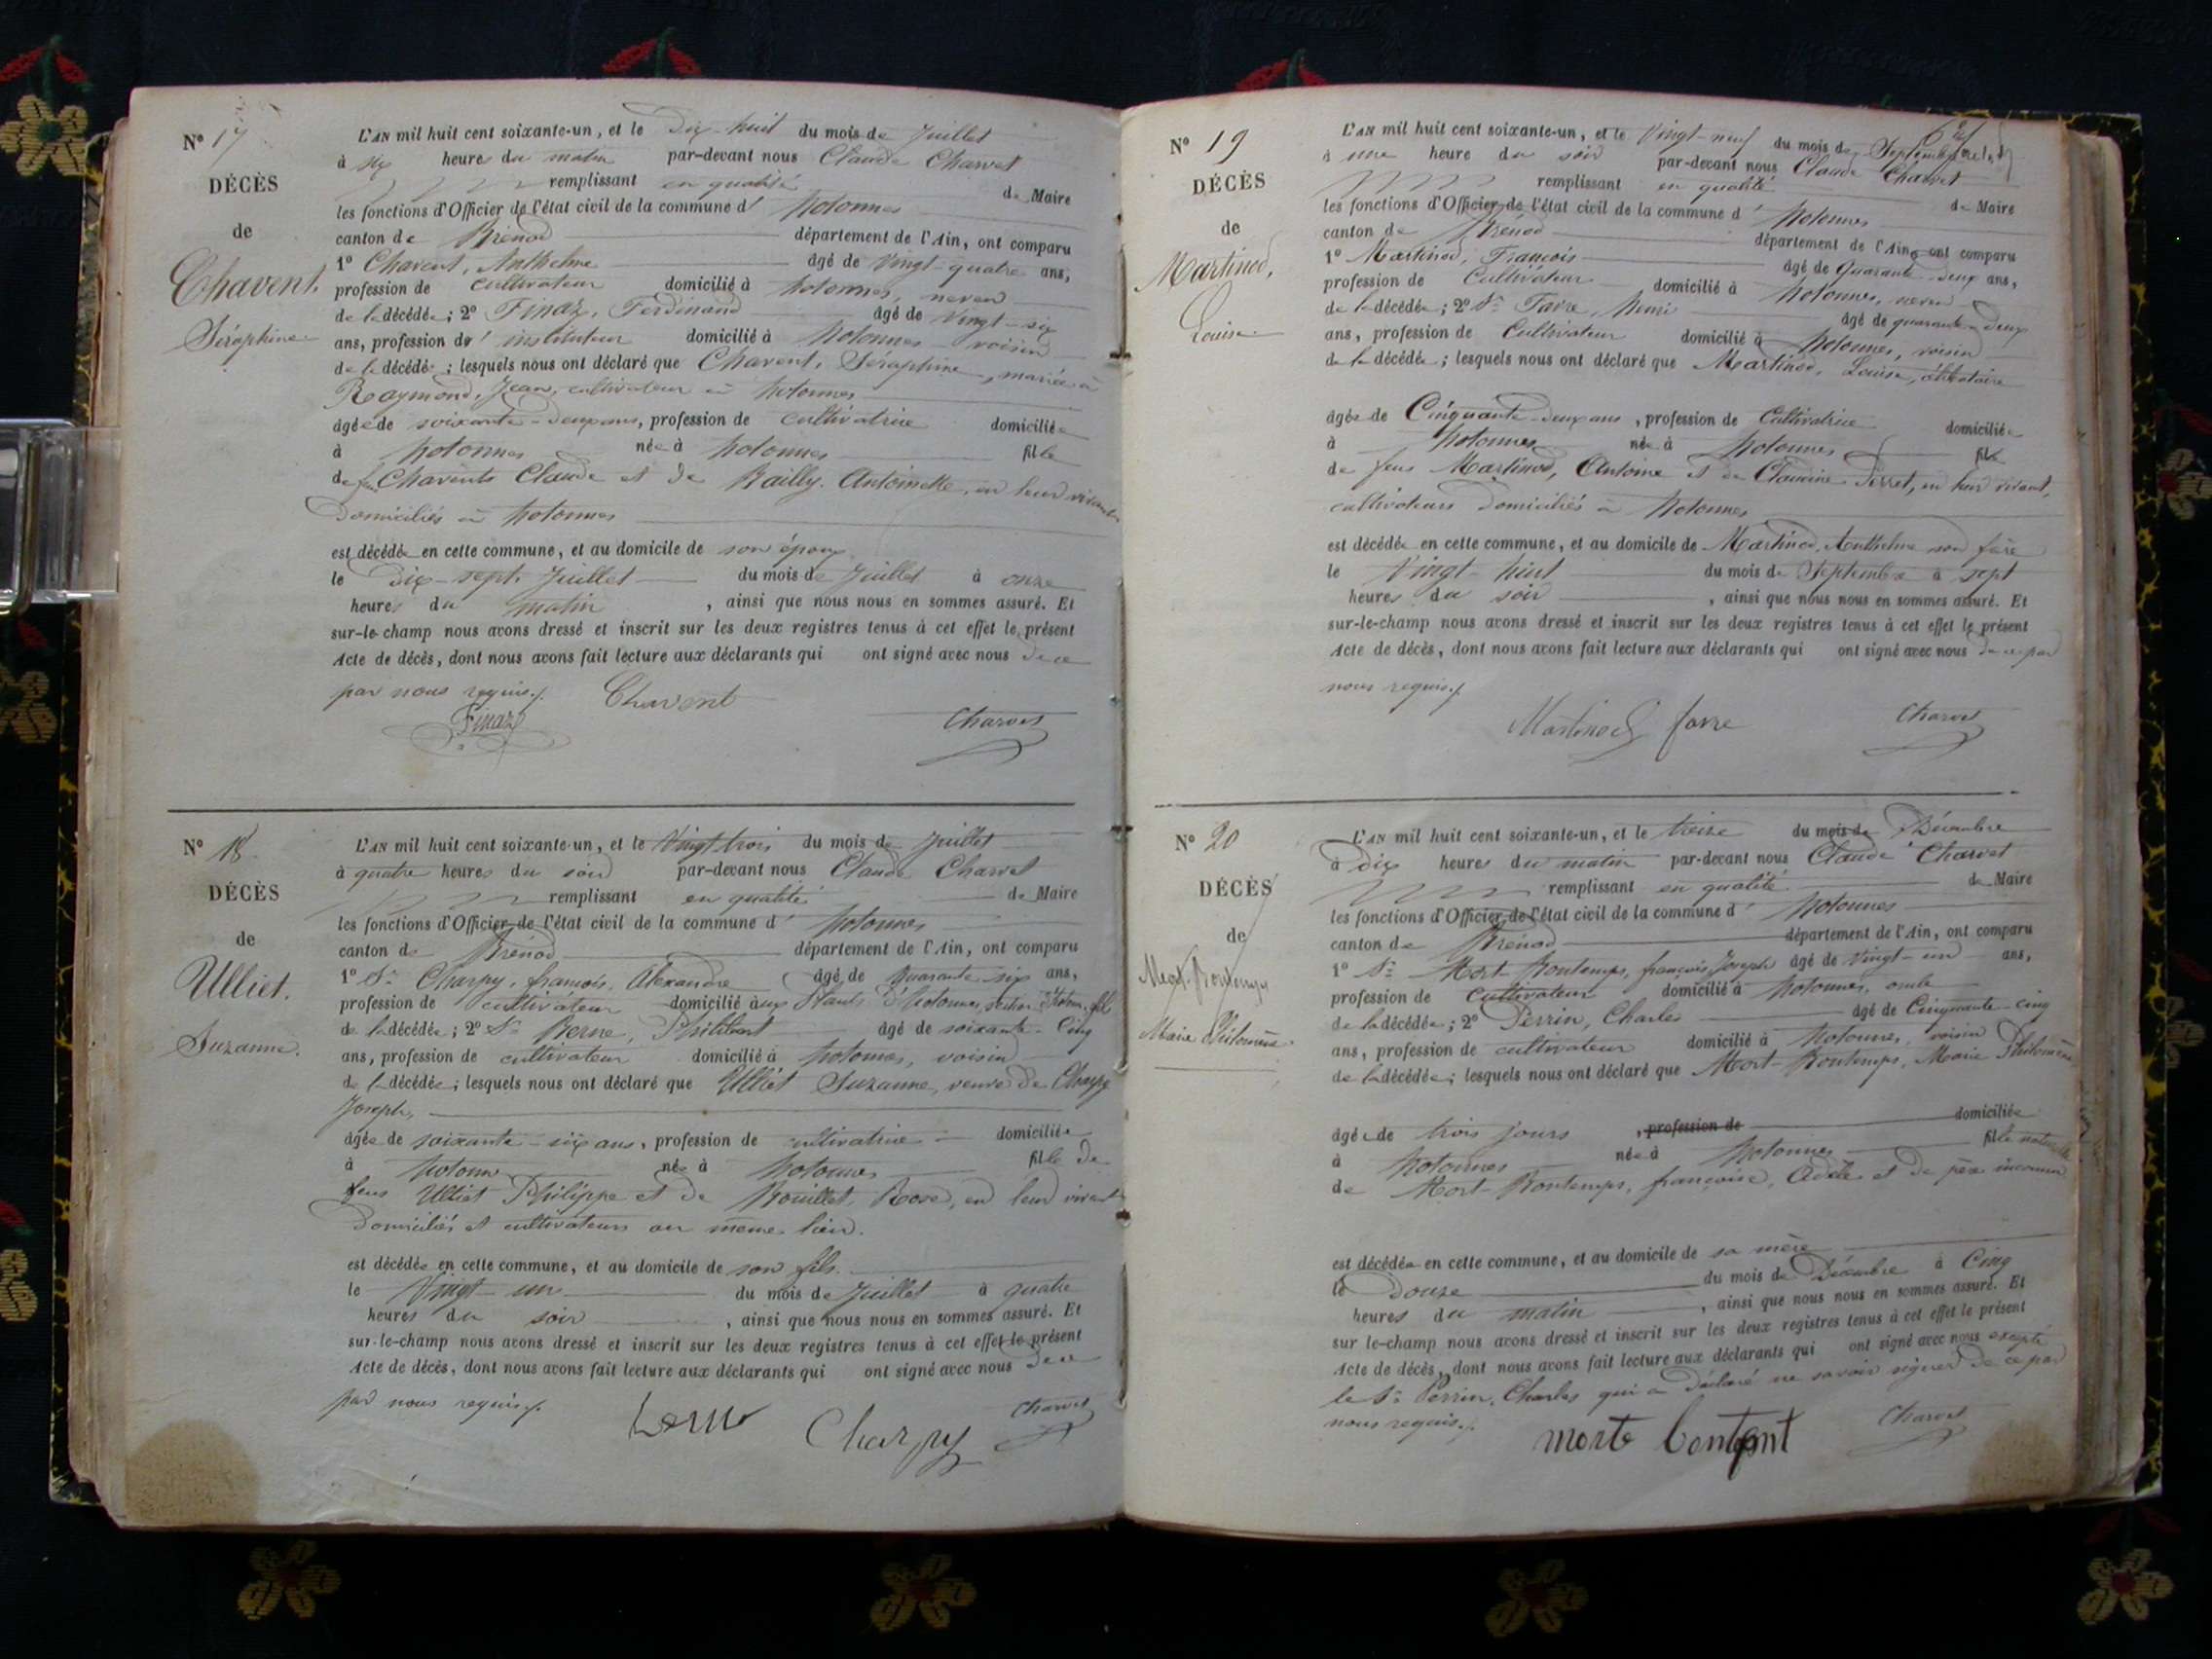 N° 17
DÉCÈS
de
Chavent,
Séraphine
L'AN mil huit cent soixante-un, et le dix-huit du mois de Juillet
à six heures du matin par-devant nous Claude Charvet
remplissant en qualité de Maire
les fonctions d'Officier de l'état civil de la commune d' hotonnes
canton de Brénod département de l'Ain, ont comparu
1° Chavent, Anthelme âgé de Vingt-quatre ans,
profession de cultivateur domicilié à hotonnes, neveu
de la décédée; 2° Finaz, Ferdinand âgé de Vingt-six
ans, profession d' instituteur domicilié à hotonnes voisin
de la décédée; lesquels nous ont déclaré que Chavent, Séraphine, mariée à
Raymond, Jean, cultivateur à hotonnes
âgée de soixante-deux ans, profession de cultivatrice domiciliée
à hotonnes née à hotonnes fille
de feu Chavent Claude et de Bailly Antoinette, en leur vivant
domiciliés à hotonnes
est décédée en cette commune, et au domicile de son époux
le dix-sept Juillet du mois de Juillet à onze
heures du matin, ainsi que nous nous en sommes assuré. Et
sur-le-champ nous avons dressé et inscrit sur les deux registres tenus à cet effet le présent
Acte de décès, dont nous avons fait lecture aux déclarants qui ont signé avec nous de ce
par nous requis./.
Chavent
Finaz
Charvet
N° 18
DÉCÈS
de
Ulliet.
Suzanne.
L'AN mil huit cent soixante-un, et le Vingt trois du mois de Juillet
à quatre heures du soir par-devant nous Claude Charvet
remplissant en qualité de Maire
les fonctions d'Officier de l'état civil de la commune d' hotonnes
canton de Brénod département de l'Ain, ont comparu
1° Sr Charpy, françois, Alexandre âgé de quarante-six ans,
profession de cultivateur domicilié aux Plans d'hotonnes, fils
de la décédée; 2° Sr Berne, Philibert âgé de soixante-Cinq
ans, profession de cultivateur domicilié à hotonnes, voisin
de la décédée; lesquels nous ont déclaré que Ulliet Suzanne, veuve de Charpy
Joseph,
âgée de soixante-six ans, profession de cultivatrice domiciliée
à hotonnes née à hotonnes fille de
feus Ulliet Philippe et de Bouillet, Rose, en leur vivant
domiciliés et cultivateurs au même lieu.
est décédée en cette commune, et au domicile de son fils.
le Vingt un du mois de Juillet à quatre
heures du soir, ainsi que nous nous en sommes assuré. Et
sur-le-champ nous avons dressé et inscrit sur les deux registres tenus à cet effet le présent
Acte de décès, dont nous avons fait lecture aux déclarants qui ont signé avec nous de ce
par nous requis./.
Charpy
Charvet
N° 19
DÉCÈS
de
Martinod,
Louise
L'AN mil huit cent soixante-un, et le Vingt-neuf du mois de Septembre
à une heure du soir par-devant nous Claude Charvet
remplissant en qualité de Maire
les fonctions d'Officier de l'état civil de la commune d' hotonnes
canton de Brénod département de l'Ain, ont comparu
1° Martinod, François âgé de quarante-deux ans,
profession de Cultivateur domicilié à hotonnes, neveu
de la décédée; 2° Sr Favre, henri âgé de quarante-deux
ans, profession de Cultivateur domicilié à hotonnes, voisin
de la décédée; lesquels nous ont déclaré que Martinod, Louise, célibataire
âgée de Cinquante-deux ans, profession de Cultivatrice domiciliée
à hotonnes née à hotonnes fille
de feus Martinod, Antoine et de Claudine Perret, en leur vivant,
cultivateurs domiciliés à hotonnes
est décédée en cette commune, et au domicile de Martinod, Anthelme son frère
le Vingt-huit du mois de Septembre à sept
heures du soir, ainsi que nous nous en sommes assuré. Et
sur-le-champ nous avons dressé et inscrit sur les deux registres tenus à cet effet le présent
Acte de décès, dont nous avons fait lecture aux déclarants qui ont signé avec nous de ce par
nous requis./.
Martinod favre
Charvet
N° 20
DÉCÈS
de
Mort-Bontemps
Marie Philomène
L'AN mil huit cent soixante-un, et le treize du mois de Décembre
à dix heures du matin par-devant nous Claude Charvet
remplissant en qualité de Maire
les fonctions d'Officier de l'état civil de la commune d' hotonnes
canton de Brénod département de l'Ain, ont comparu
1° Sr Mort-Bontemps, françois Joseph âgé de Vingt-un ans,
profession de Cultivateur domicilié à hotonnes, oncle
de la décédée; 2° Perrin, Charles âgé de Cinquante-cinq
ans, profession de cultivateur domicilié à hotonnes, voisin
de la décédée; lesquels nous ont déclaré que Mort-Bontemps, Marie Philomène
âgée de trois jours, profession de domiciliée
à hotonnes née à hotonnes fille naturelle
de Mort-Bontemps, françoise, Adèle et de père inconnu
est décédée en cette commune, et au domicile de sa mère
le douze du mois de Décembre à Cinq
heures du matin, ainsi que nous nous en sommes assuré. Et
sur le-champ nous avons dressé et inscrit sur les deux registres tenus à cet effet le présent
Acte de décès, dont nous avons fait lecture aux déclarants qui ont signé avec nous excepté
le Sr Perrin, Charles qui a déclaré ne savoir signer de ce par
nous requis./.
morte bontent
Charvet